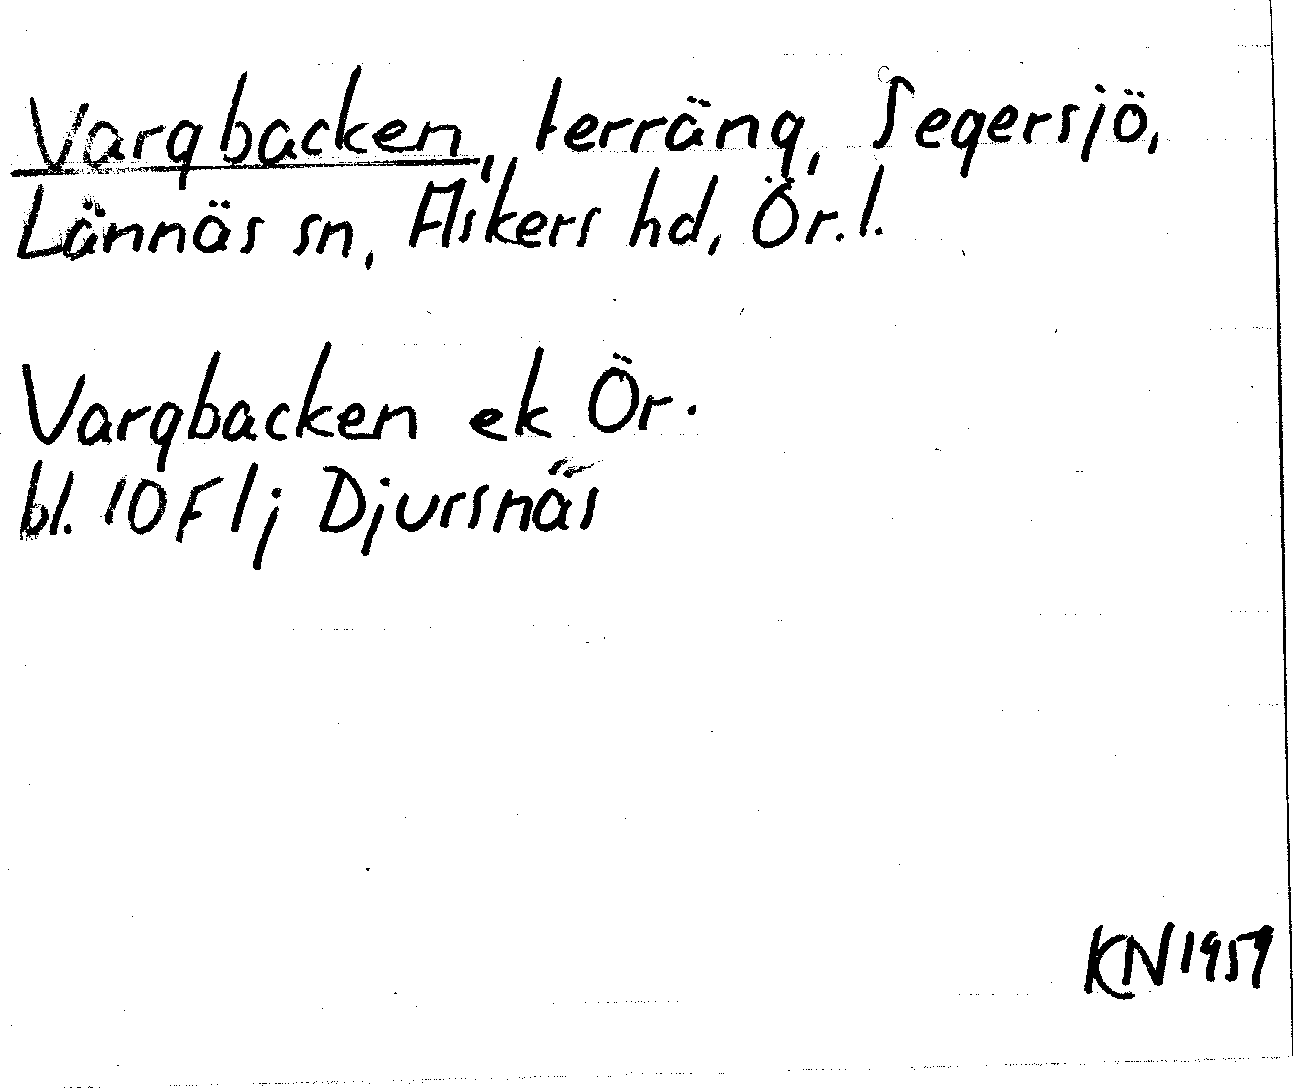 Vargbacken, terräng, Segersjö,
Lännäs sn, Askers hd, Ör. l.
Vargbacken ek Ör.
bl. 10 F 1 j Djursnäs
KN 1959